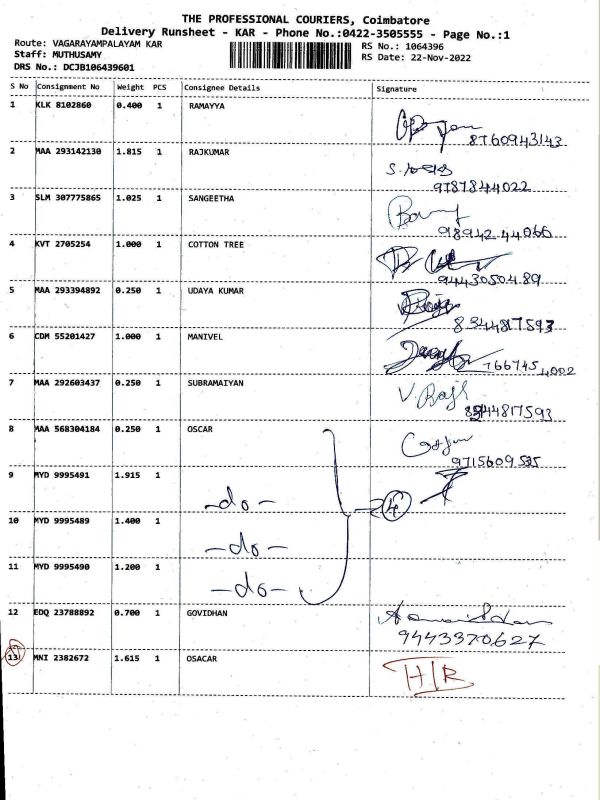 THE PROFESSIONAL COURIERS, Coimbatore
Delivery Runsheet - KAR - Phone No.:0422-3505555 - Page No.:1
Route: VAGARAYAMPALAYAM KAR
Staff: MUTHUSAMY
DRS No.: DCJB106439601
RS No.: 1064396
RS Date: 22-Nov-2022
S No Consignment No Weight PCS Consignee Details Signature
1 KLK 8102860 0.400 1 RAMAYYA
8760943143
2 MAA 293142130 1.815 1 RAJKUMAR
9787844022
3 SLM 307775865 1.025 1 SANGEETHA
98942 44066
4 KVT 2705254 1.000 1 COTTON TREE
9443050489
5 MAA 293394892 0.250 1 UDAYA KUMAR
8344817593
6 CDM 55201427 1.000 1 MANIVEL
766745 4002
7 MAA 292603437 0.250 1 SUBRAMAIYAN
V. Rajk
8344817593
8 MAA 568304184 0.250 1 OSCAR
9715609535
9 MYD 9995491 1.915 1
-do-
4
10 MYD 9995489 1.400 1
-do-
11 MYD 9995490 1.200 1
-do-
12 EDQ 23788892 0.700 1 GOVIDHAN
9443370627
13 MNI 2382672 1.615 1 OSACAR
H/R